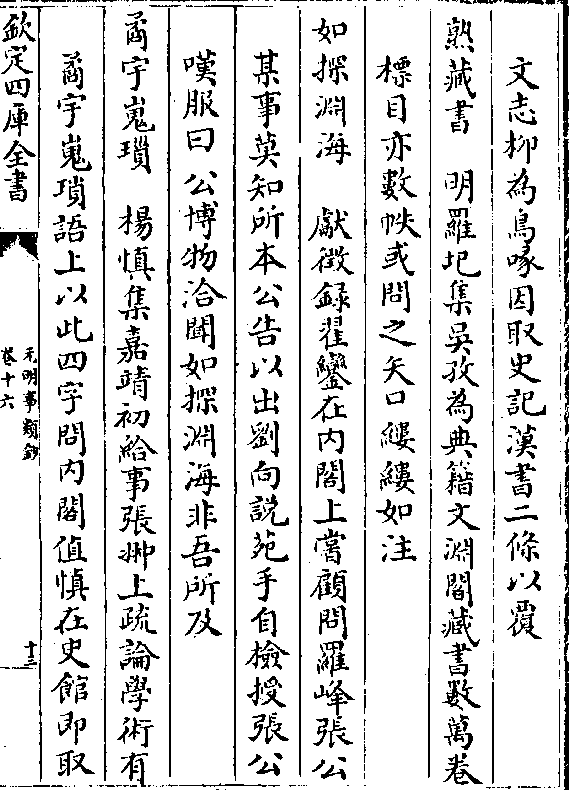 文志柳為鳥喙因取史記漢書二條以覆
熟藏書　明羅圯集吳孜為典籍文淵閣藏書數萬卷
標目亦數帙或問之矢口縷縷如注
如探淵海　獻徵録翟鑾在内閣上嘗顧問羅峰張公
某事莫知所本公告以出劉向説苑手自檢授張公
嘆服曰公博物洽聞如探淵海非吾所及
矞宇嵬瑣　楊慎集嘉靖初給事張翀上疏論學術有
矞宇嵬瑣語上以此四字問内閣值慎在史館即取
欽定四庫全書
元明事類鈔
卷十六
十三